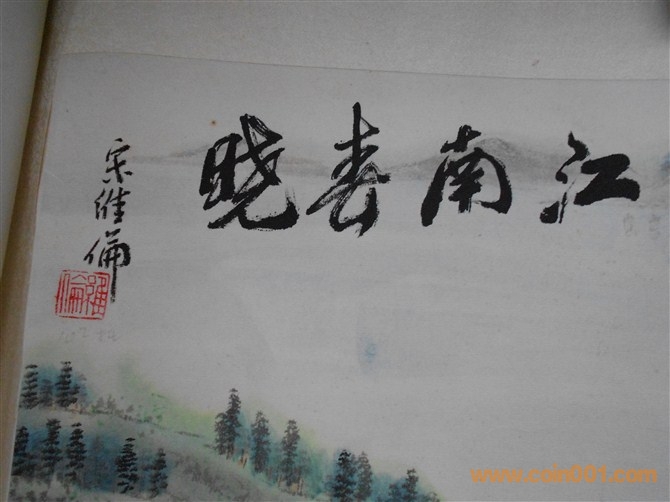 江南春晓
宋维倫
www.coin001.com